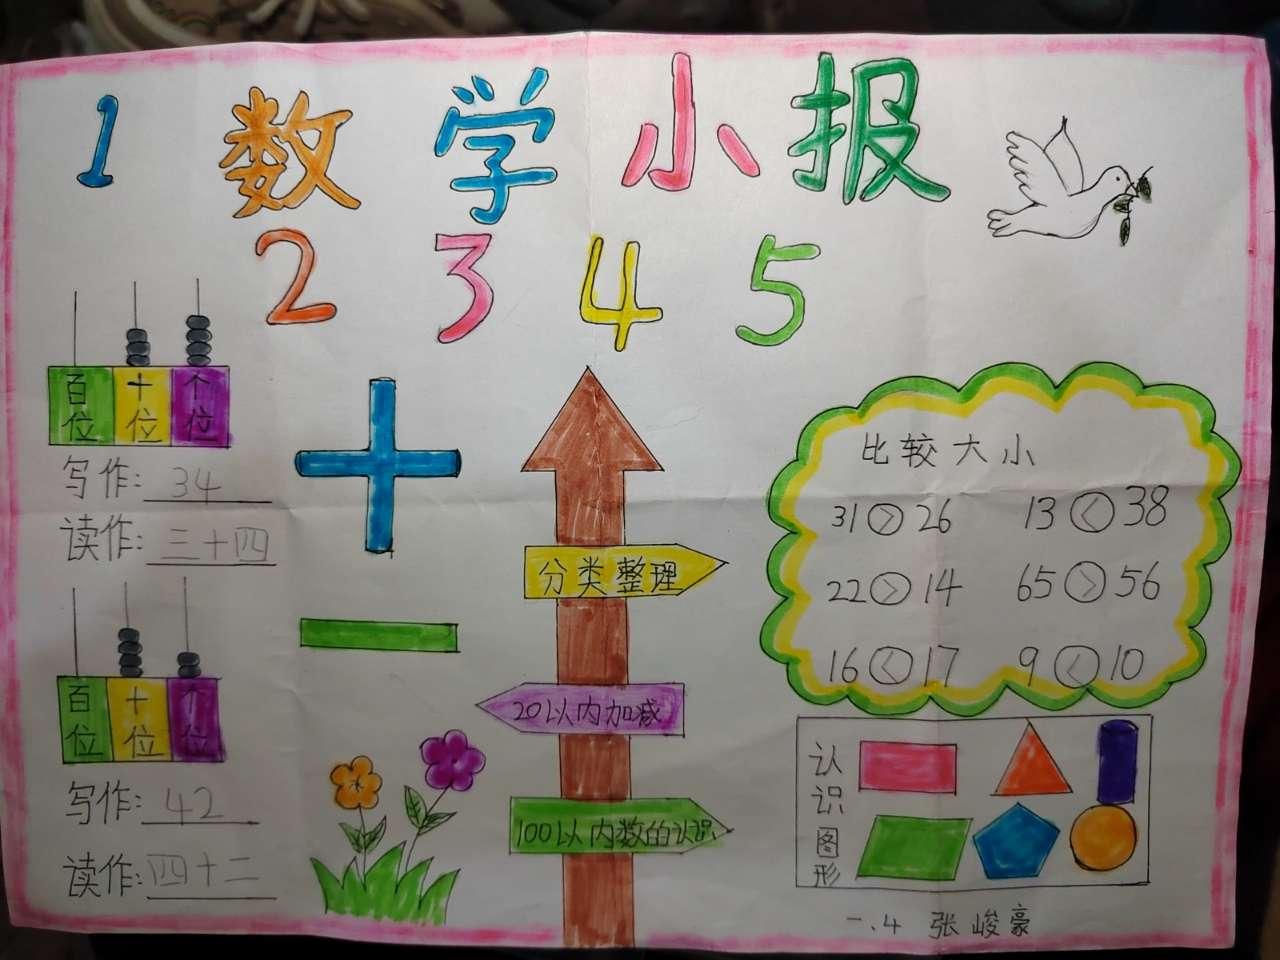 1 数学小报
2 3 4 5
百位 十位 个位
写作: 34
读作: 三十四
百位 十位 个位
写作: 42
读作: 四十二
分类整理
20以内加减
100以内数的认识
比较大小
31 > 26 13 < 38
22 > 14 65 > 56
16 < 17 9 < 10
认识图形
一.4 张峻豪